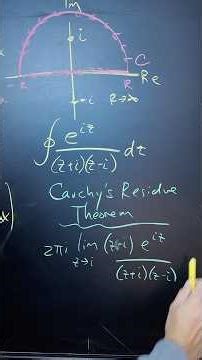 Im
i
C
-R
R
Re
-i
R→∞
∮ e^{iz} / (z+i)(z-i) dz
Cauchy's Residue
Theorem
2πi lim z→i (z-i) e^{iz} / (z+i)(z-i)